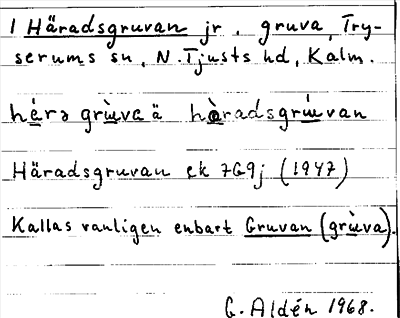 1 Häradsgruvan jr, gruva, Try-
serums sn, N. Tjusts hd, Kalm.
hérə grùvɑ ä hæ̀radsgrúvan
Häradsgruvan ek 7G9j (1947)
Kallas vanligen enbart Gruvan (grùva).
G. Aldén 1968.